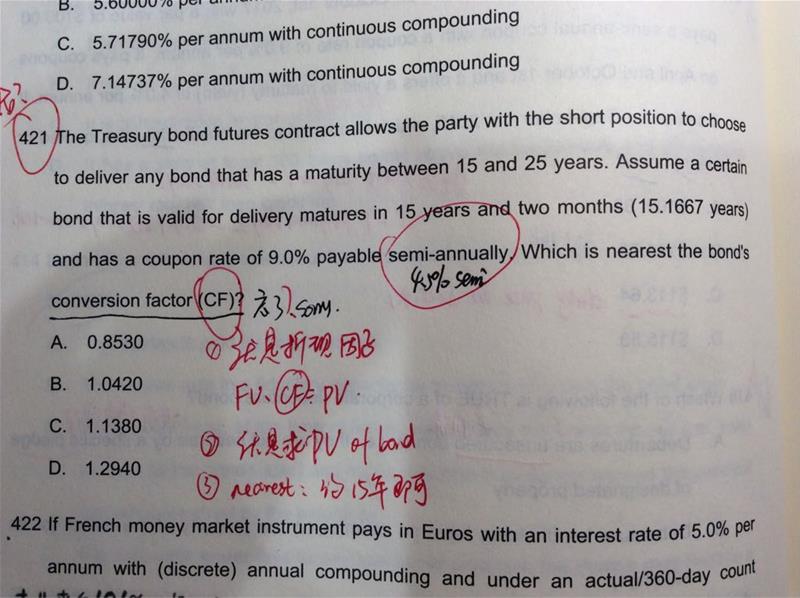 B. 5.60000% per annum
C. 5.71790% per annum with continuous compounding
D. 7.14737% per annum with continuous compounding
421 The Treasury bond futures contract allows the party with the short position to choose
to deliver any bond that has a maturity between 15 and 25 years. Assume a certain
bond that is valid for delivery matures in 15 years and two months (15.1667 years)
and has a coupon rate of 9.0% payable semi-annually. Which is nearest the bond's
4.5% semi
conversion factor (CF)? 忘了. sorry.
A. 0.8530
① 就是折现因子
B. 1.0420
FV·CF=PV.
C. 1.1380
② 就是求PV of bond
D. 1.2940
③ nearest: 约15年即可
422 If French money market instrument pays in Euros with an interest rate of 5.0% per
annum with (discrete) annual compounding and under an actual/360-day count